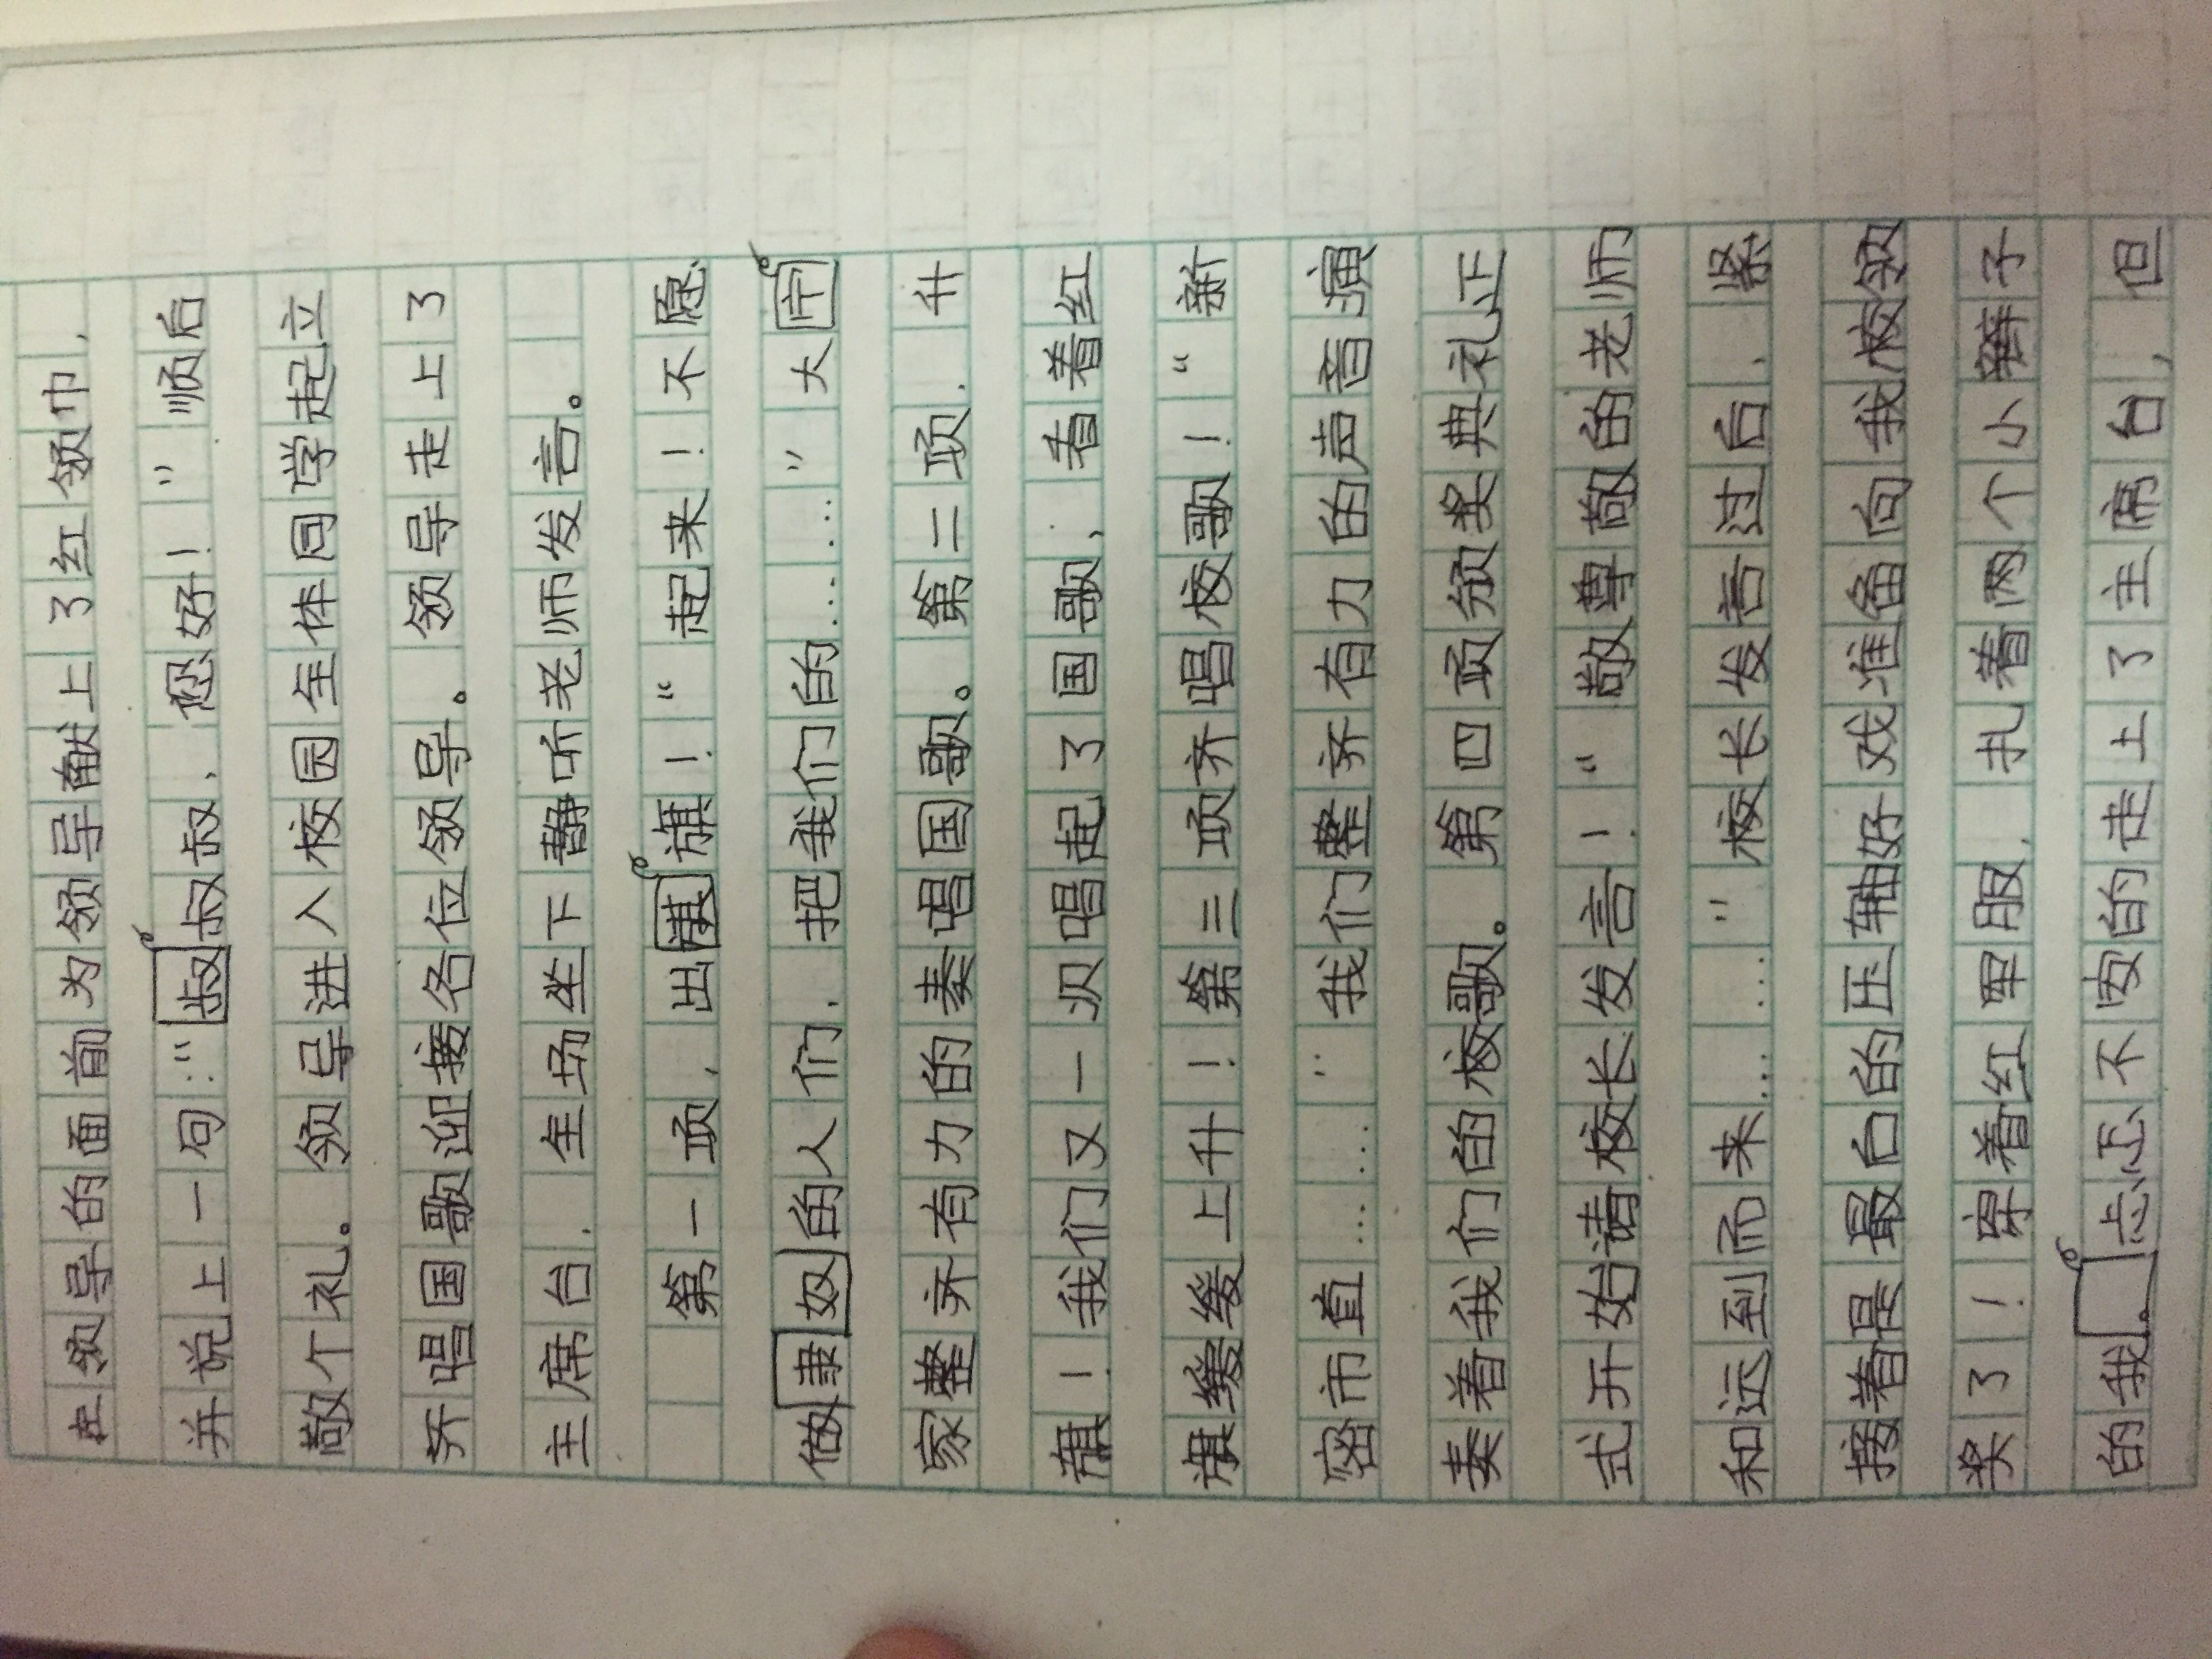 在领导的面前为领导献上了红领巾，
并说上一句："叔叔，您好！"顺后
敬个礼。领导进入校园全体同学起立
齐唱国歌迎接各位领导。领导走上了
主席台，全场坐下静听老师发言。
第一项，出旗！"起来！不愿
做隶奴的人们，把我们的……"大
家整齐有力的奏唱国歌。第二项，升
旗！我们又一次唱起了国歌，看着红
旗缓缓上升！第三项齐唱校歌！"新
密市直……"我们整齐有力的声音演
奏着我们的校歌。第四项颁奖典礼正
式开始请校长发言！"敬尊敬的老师
和远到而来……"校长发言过后，紧
接着是最后的压轴好戏准备向我校领
奖了！穿着红军服，扎着两个小辫子
的我。忐忑不安的走上了主席台，但